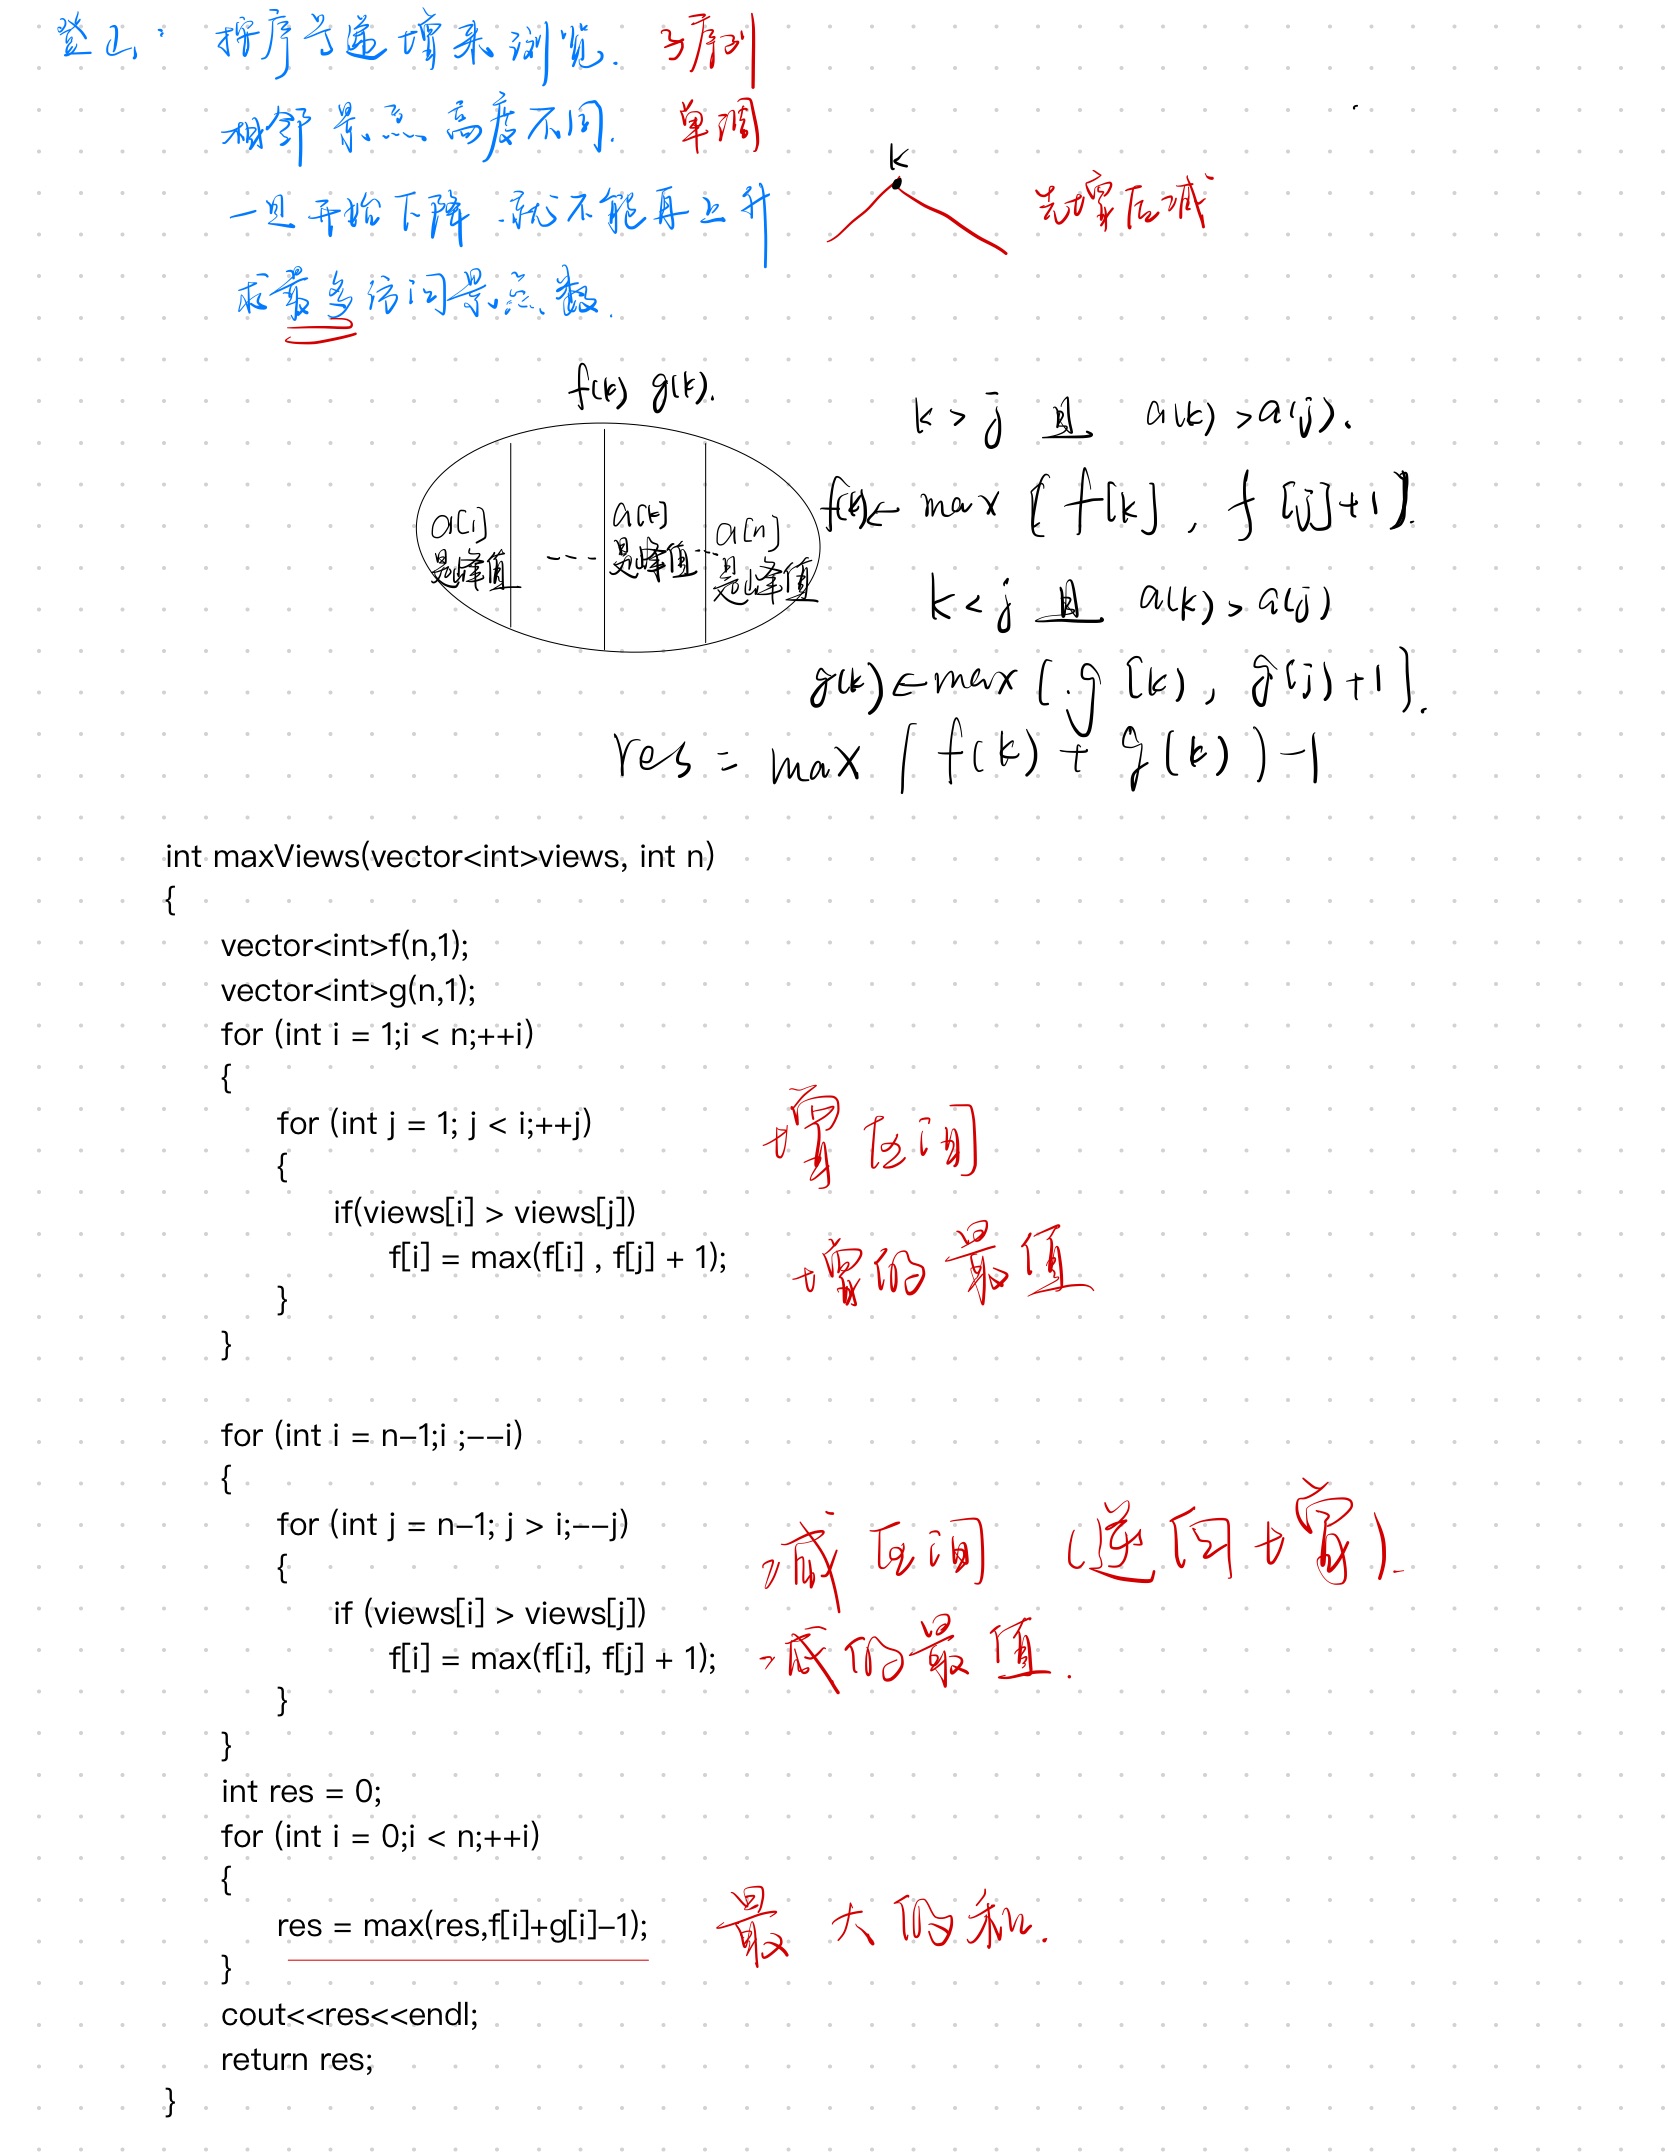 登山： 按序号递增来浏览. 子序列
相邻景点高度不同. 单调
k
一旦开始下降 就不能再上升 先增后减
求最多访问景点数.
f(k) g(k).
k > j 且 a(k) > a(j).
a[1] 是峰值 ---- a[k] 是峰值 --- a[n] 是峰值
f(k) ← max [ f[k] , f[j]+1 ].
k < j 且 a(k) > a(j)
g(k) ← max [ g[k) , g(j)+1 ].
res = max ( f(k) + g(k) ) -1
int maxViews(vector<int>views, int n)
{
vector<int>f(n,1);
vector<int>g(n,1);
for (int i = 1;i < n;++i)
{
for (int j = 1; j < i;++j) 增区间
{
if(views[i] > views[j])
f[i] = max(f[i] , f[j] + 1); 增的最值
}
}
for (int i = n-1;i ;--i)
{
for (int j = n-1; j > i;--j) 减区间 (逆向增).
{
if (views[i] > views[j])
f[i] = max(f[i], f[j] + 1); 减的最值.
}
}
int res = 0;
for (int i = 0;i < n;++i)
{
res = max(res,f[i]+g[i]-1); 最大的和.
}
cout<<res<<endl;
return res;
}